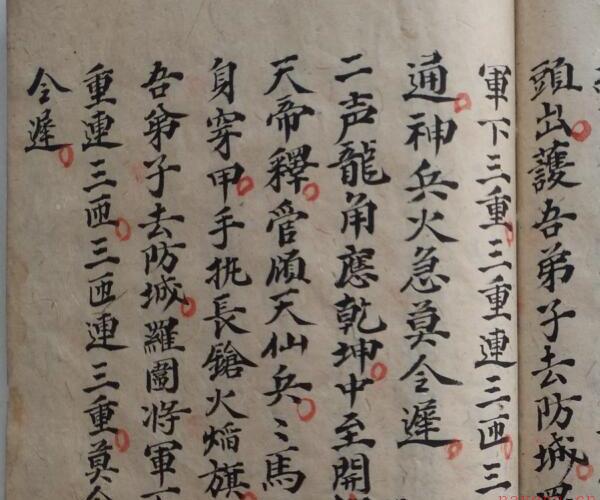 頭出護吾弟子去防城羅
軍下三重三重連三匝三
通神兵火急莫令遲
二声龍角應乾坤中至開
天帝釋管領天仙兵〻馬
身穿甲手执長鎗火焰旗
吾弟子去防城羅圍將軍下
重連三匝三匝連三重莫令
令遲